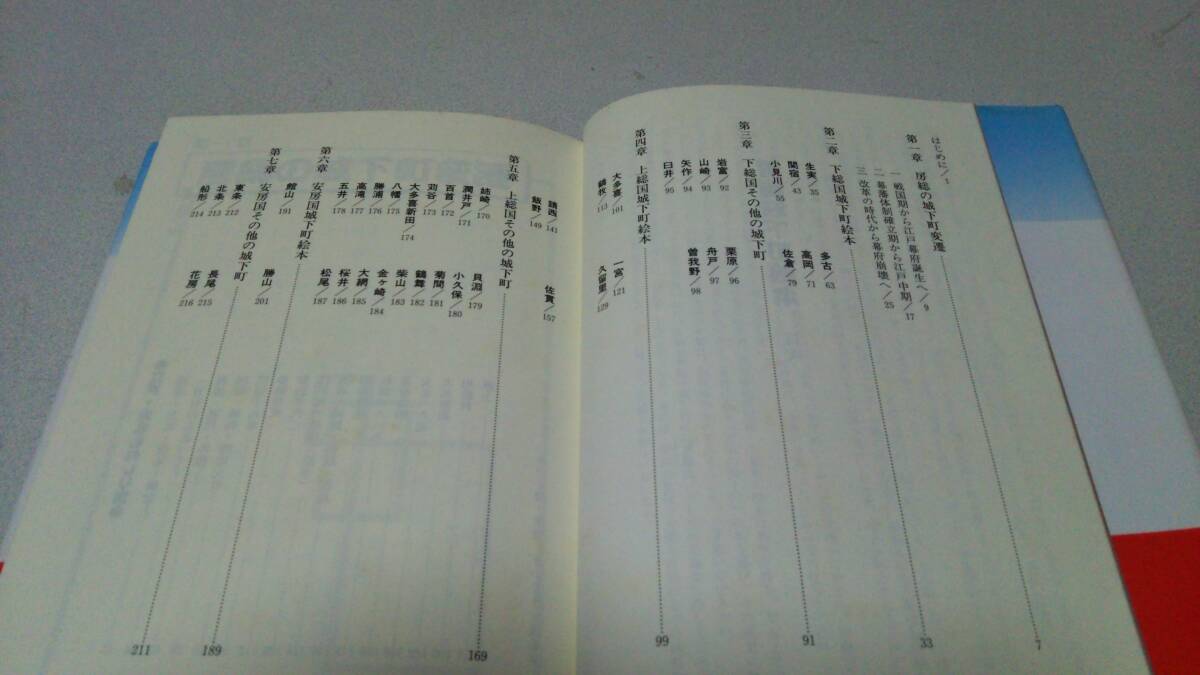 はじめに/1
第一章 房総の城下町変遷 7
一 戦国期から江戸幕府誕生へ/9
二 幕藩体制確立期から江戸中期/17
三 改革の時代から幕府崩壊へ/25
第二章 下総国城下町絵本 33
生実/35 多古/63
関宿/43 高岡/71
小見川/55 佐倉/79
第三章 下総国その他の城下町 91
岩富/92 栗原/96
山崎/93 舟戸/97
矢作/94 曽我野/98
臼井/95
第四章 上総国城下町絵本 99
大多喜/101 一宮/121
鶴牧/113 久留里/129
請西/141 佐貫/157
飯野/149
第五章 上総国その他の城下町 169
姉崎/170 貝淵/179
潤井戸/171 小久保/180
百首/172 菊間/181
苅谷/173 鶴舞/182
大多喜新田/174 柴山/183
八幡/175 金ヶ崎/184
勝浦/176 大網/185
高滝/177 桜井/186
五井/178 松尾/187
第六章 安房国城下町絵本 189
館山/191 勝山/201
第七章 安房国その他の城下町 211
東条/212 長尾/215
北条/213 花房/216
船形/214